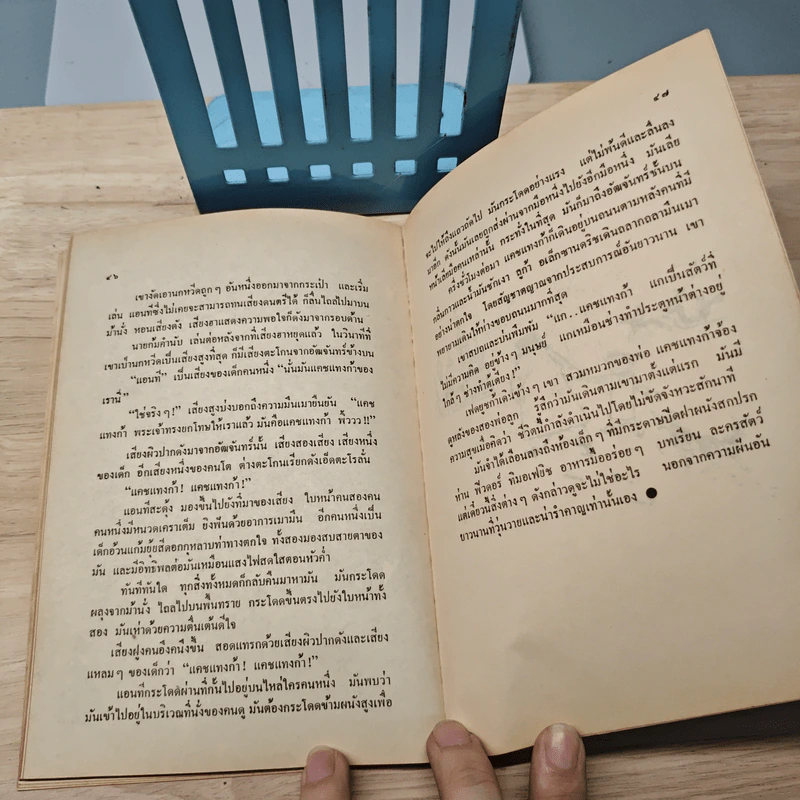 ๔๖
เขางัดเอานกหวีดถูกๆ อันหนึ่งออกมาจากกระเป๋า และเริ่ม
เล่น แอนที่ซึ่งไม่เคยจะสามารถทนเสียงดนตรีได้ ก็ลื่นไถลไปมาบน
ม้านั่ง หอนเสียงดัง เสียงฮาแสดงความพอใจก็ดังมาจากรอบด้าน
นายก็มคำนับ เล่นต่อหลังจากที่เสียงฮาหยุดแล้ว ในวินาทีที่
เขาเป่านกหวีดเป็นเสียงสูงที่สุด ก็มีเสียงตะโกนจากอัฒจันทร์ข้างบน
“แอนที่” เป็นเสียงของเด็กคนหนึ่ง “นั่นมันแคชแทงก้าของ
เรานี่”
“ใช่จริงๆ!” เสียงสูงบ่งบอกถึงความมึนเมายืนยัน “แคช
แทงก้า พระเจ้าทรงยกโทษให้เราแล้ว มันคือแคชแทงก้า พิ้ววว!!”
เสียงผิวปากดังมาจากอัฒจันทร์นั้น เสียงสองเสียง เสียงหนึ่ง
ของเด็ก อีกเสียงหนึ่งของคนโต ต่างตะโกนเรียกดังเอ็ดตะโรลั่น
“แคชแทงก้า! แคชแทงก้า!”
แอนที่สะดุ้ง มองขึ้นไปยังที่มาของเสียง ใบหน้าคนสองคน
คนหนึ่งมีหนวดเคราเต็ม ยิงฟันด้วยอาการเมามัน อีกคนหนึ่งเป็น
เด็กอ้วนแก้มยุ้ยสีดอกกุหลาบท่าทางตกใจ ทั้งสองมองสบสายตาของ
มัน และมีอิทธิพลต่อมันเหมือนแสงไฟสดใสตอนหัวค่ำ
ทันทีทันใด ทุกสิ่งทั้งหมดก็กลับคืนมาหามัน มันกระโดด
ผลุงจากม้านั่ง ไถลไปบนพื้นทราย กระโดดขึ้นตรงไปยังใบหน้าทั้ง
สอง มันเห่าด้วยความตื่นเต้นดีใจ
เสียงฝูงคนอึงคนึงขึ้น สอดแทรกด้วยเสียงผิวปากดังและเสียง
แหลมๆ ของเด็กว่า “แคชแทงก้า! แคชแทงก้า!”
แอนที่กระโดดผ่านที่กั้นไปอยู่บนไหล่ใครคนหนึ่ง มันพบว่า
มันเข้าไปอยู่ในบริเวณที่นั่งของคนดู มันต้องกระโดดข้ามผนังสูงเพื่อ
๔๗
จะไปให้ถึงแถวถัดไป มันกระโดดอย่างแรง แต่ไม่พ้นดีและลื่นลง
มาอีก ดังนั้นมันเลยถูกส่งผ่านจากมือหนึ่งไปยังอีกมือหนึ่ง มันเลีย
หน้าเลียมือคนเหล่านั้น กระทั่งในที่สุด มันก็มาถึงอัฒจันทร์ชั้นบน
ครึ่งชั่วโมงต่อมา แคชแทงก้าก็เดินอยู่บนถนนตามหลังคนที่มี
กลิ่นกาวและน้ำมันชักเงา ลูก้า อเล็กซานดริชเดินถลากถลามึนเมา
อย่างน่าตกใจ โดยสัญชาตญาณจากประสบการณ์อันยาวนาน เขา
พยายามเดินให้ห่างขอบถนนมากที่สุด
เขาสบถและบ่นพึมพัม “แก...แคชแทงก้า แกเป็นสัตว์ที่
ไม่มีความคิด อยู่ข้างๆ มนุษย์ แกเหมือนช่างทำประตูหน้าต่างอยู่
ใกล้ๆ ช่างทำตู้เตียง!”
เฟดยูชก้าเดินข้างๆ เขา สวมหมวกของพ่อ แคชแทงก้าจ้อง
ดูหลังของสองพ่อลูก รู้สึกว่ามันเดินตามเขามาตั้งแต่แรก มันมี
ความสุขเมื่อคิดว่า ชีวิตนี้กำลังดำเนินไปโดยไม่ขัดจังหวะสักนาที
มันจำได้เลือนลางถึงห้องเล็กๆ ที่มีกระดาษปิดฝาผนังสกปรก
ท่าน ฟีวดอร์ ทิมอเฟยิช อาหารมื้ออร่อยๆ บทเรียน ละครสัตว์
แต่เดี๋ยวนี้สิ่งต่างๆ ดังกล่าวดูจะไม่ใช่อะไร นอกจากความฝันอัน
ยาวนานที่วุ่นวายและน่ารำคาญเท่านั้นเอง ●